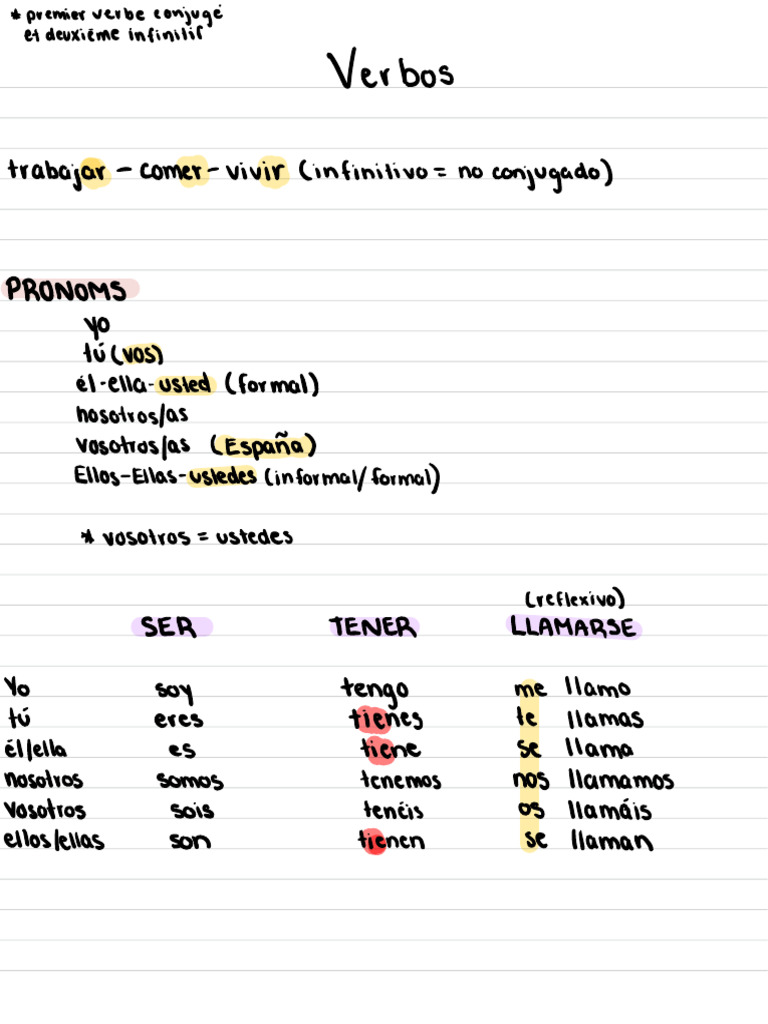 * premier verbe conjugé
et deuxième infinitif
Verbos
trabajar - comer - vivir (infinitivo = no conjugado)
PRONOMS
yo
tú (vos)
él-ella-usted (formal)
nosotros/as
vosotros/as (España)
Ellos-Ellas-ustedes (informal/formal)
* vosotros = ustedes
(reflexivo)
SER TENER LLAMARSE
Yo soy tengo me llamo
tú eres tienes te llamas
él/ella es tiene se llama
nosotros somos tenemos nos llamamos
vosotros sois tenéis os llamáis
ellos/ellas son tienen se llaman